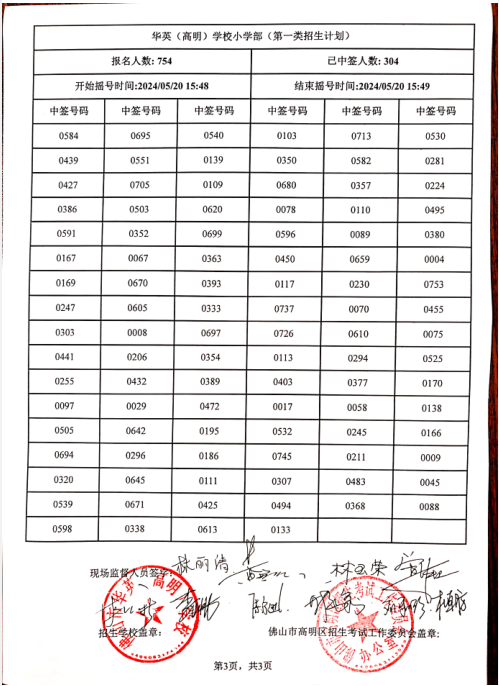 华英（高明）学校小学部（第一类招生计划）
报名人数: 754 已中签人数: 304
开始摇号时间:2024/05/20 15:48 结束摇号时间:2024/05/20 15:49
中签号码 中签号码 中签号码 中签号码 中签号码 中签号码
0584 0695 0540 0103 0713 0530
0439 0551 0139 0350 0582 0281
0427 0705 0109 0680 0357 0224
0386 0503 0620 0078 0110 0495
0591 0352 0699 0596 0089 0380
0167 0067 0363 0450 0659 0004
0169 0670 0393 0117 0230 0753
0247 0605 0333 0737 0070 0455
0303 0008 0697 0726 0610 0075
0441 0206 0354 0113 0294 0525
0255 0432 0389 0403 0377 0170
0097 0029 0472 0017 0058 0138
0505 0642 0195 0532 0245 0166
0694 0296 0186 0745 0211 0009
0320 0645 0111 0307 0483 0045
0539 0671 0425 0494 0368 0088
0598 0338 0613 0133
现场监督人员签字:
招生学校盖章: 佛山市高明区招生考试工作委员会盖章:
第3页，共3页